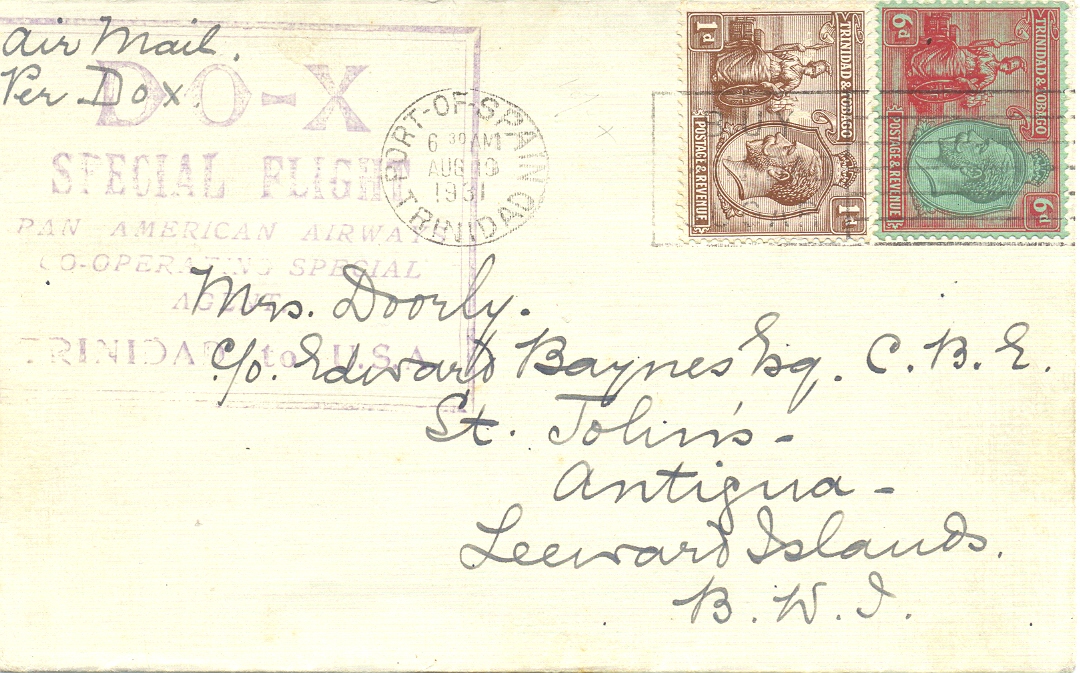 Air Mail.
Per Do x.
DO-X
SPECIAL FLIGHT
PAN AMERICAN AIRWAYS
CO-OPERATING SPECIAL
AGENT
TRINIDAD to U.S.A.
PORT-OF-SPAIN
6 30 AM
AUG 19
1931
TRINIDAD
1d
TRINIDAD & TOBAGO
POSTAGE & REVENUE
1d
6d
TRINIDAD & TOBAGO
POSTAGE & REVENUE
6d
Mrs. Doorly.
c/o. Edward Baynes Esq. C. B. E.
St. John's -
Antigua -
Leeward Islands.
B. W. I.